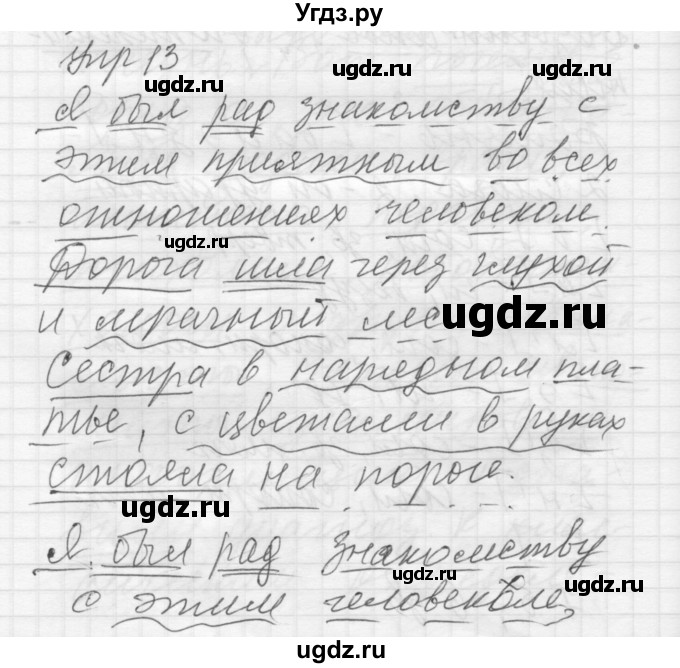 Угдз.ру
Упр 13
ugdz.ru ugdz.ru
Я был рад знакомству с
этим приятным во всех
ugdz.ru
отношениях человеком.
ugdz.ru
Дорога шла через глухой
и мрачный лес ugdz.ru
Сестра в нарядном пла-
тье, с цветами в руках
стояла на пороге.
ugdz.ru ugdz.ru
Я был рад знакомству
ugdz.ru ugdz.ru
с этим человеком,
ugdz.ru ugdz.ru